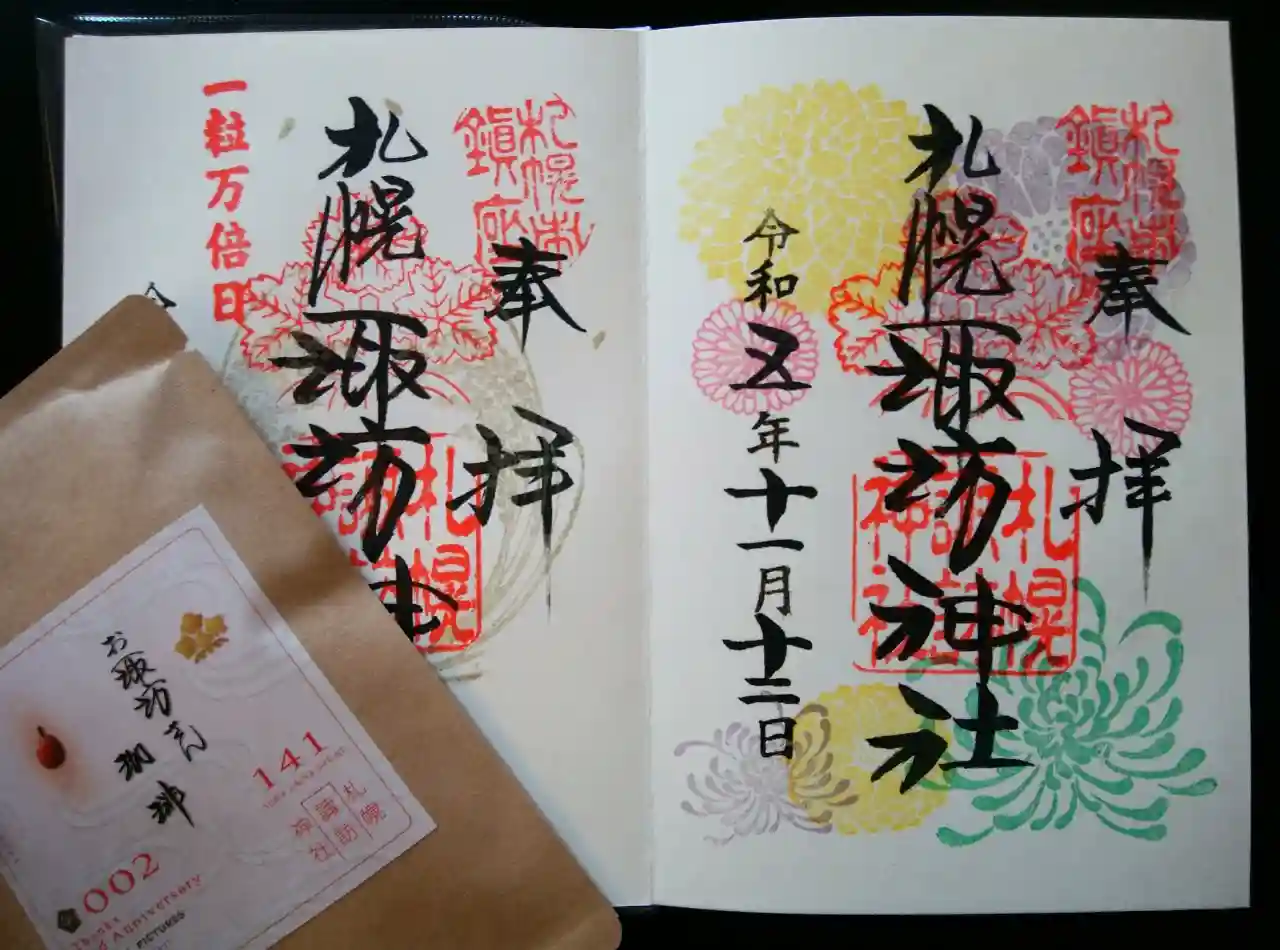 奉拝
札幌諏訪神社
札幌市
鎮座
札幌
諏訪
神社
令和五年十一月十二日
奉拝
札幌諏訪神
札幌市
鎮座
札幌
一粒万倍日
お諏訪さん
珈琲
141
札幌
諏訪
神社
002
Thanks
Anniversary
PICTURES